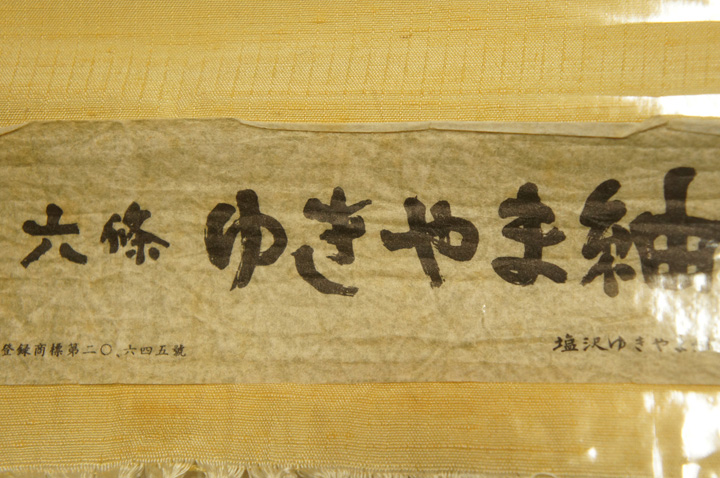 六條 ゆきやま紬
登録商標第二〇、六四五號
塩沢ゆきや